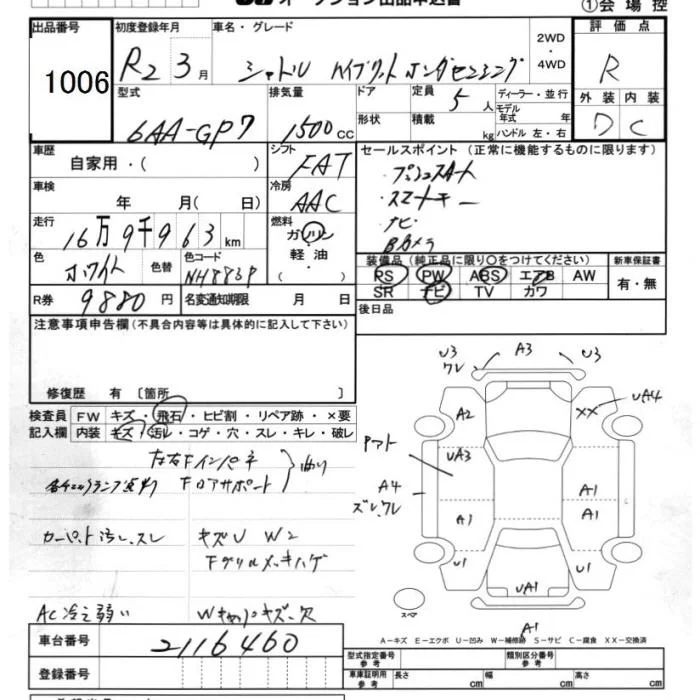 オークション出品申込書
①会場控
出品番号 初度登録年月 車名・グレード 2WD・4WD 評価点
1006 R2 3月 シャトル ハイブリット ホンダセンシング R
型式 排気量 ドア 定員 5人 ディーラー・並行 外装 内装
6AA-GP7 1500cc 形状 積載 kg モデル年式 年 ハンドル 左・右 D C
車歴 自家用・( ) シフト FAT セールスポイント(正常に機能するものに限ります)
・プッシュスタート
・スマートキー
・ナビ
・Bカメラ
車検 年 月( 日) 冷房 AAC
走行 16万9千963km 燃料 ガソリン・軽油・( )
色 ホワイト 色替 色コード NH883P
装備品(純正品に限り○をつけてください) 新車保証書
PS PW ABS エアB AW 有・無
SR ナビ TV カワ
R券 9880円 名変通知期限 月 日 後日品
注意事項申告欄(不具合内容等は具体的に記入して下さい)
修復歴 有〔箇所 〕
検査員 FW キズ・飛石・ヒビ割・リペア跡・×要
記入欄 内装 キズ・汚レ・コゲ・穴・スレ・キレ・破レ
左右Fインパネ
Fロアサポート
カーペット汚レ、スレ キズU W2
Fグリルメッキハゲ
AC冷え弱い Wキャップキズ、欠
U3 ワレ A3 U3
A2 XX UA4
UA3
A4 ズレ、ワレ
A1 A1 A1
U1 U1
UA1
A1
スペア
A-キズ E-エクボ U-凹み W-補修跡 S-サビ C-腐食 XX-交換済
車台番号 2116460
型式指定番号 参考 類別区分番号 参考
登録番号 車庫証明用 参考 長さ cm 幅 cm 高さ cm